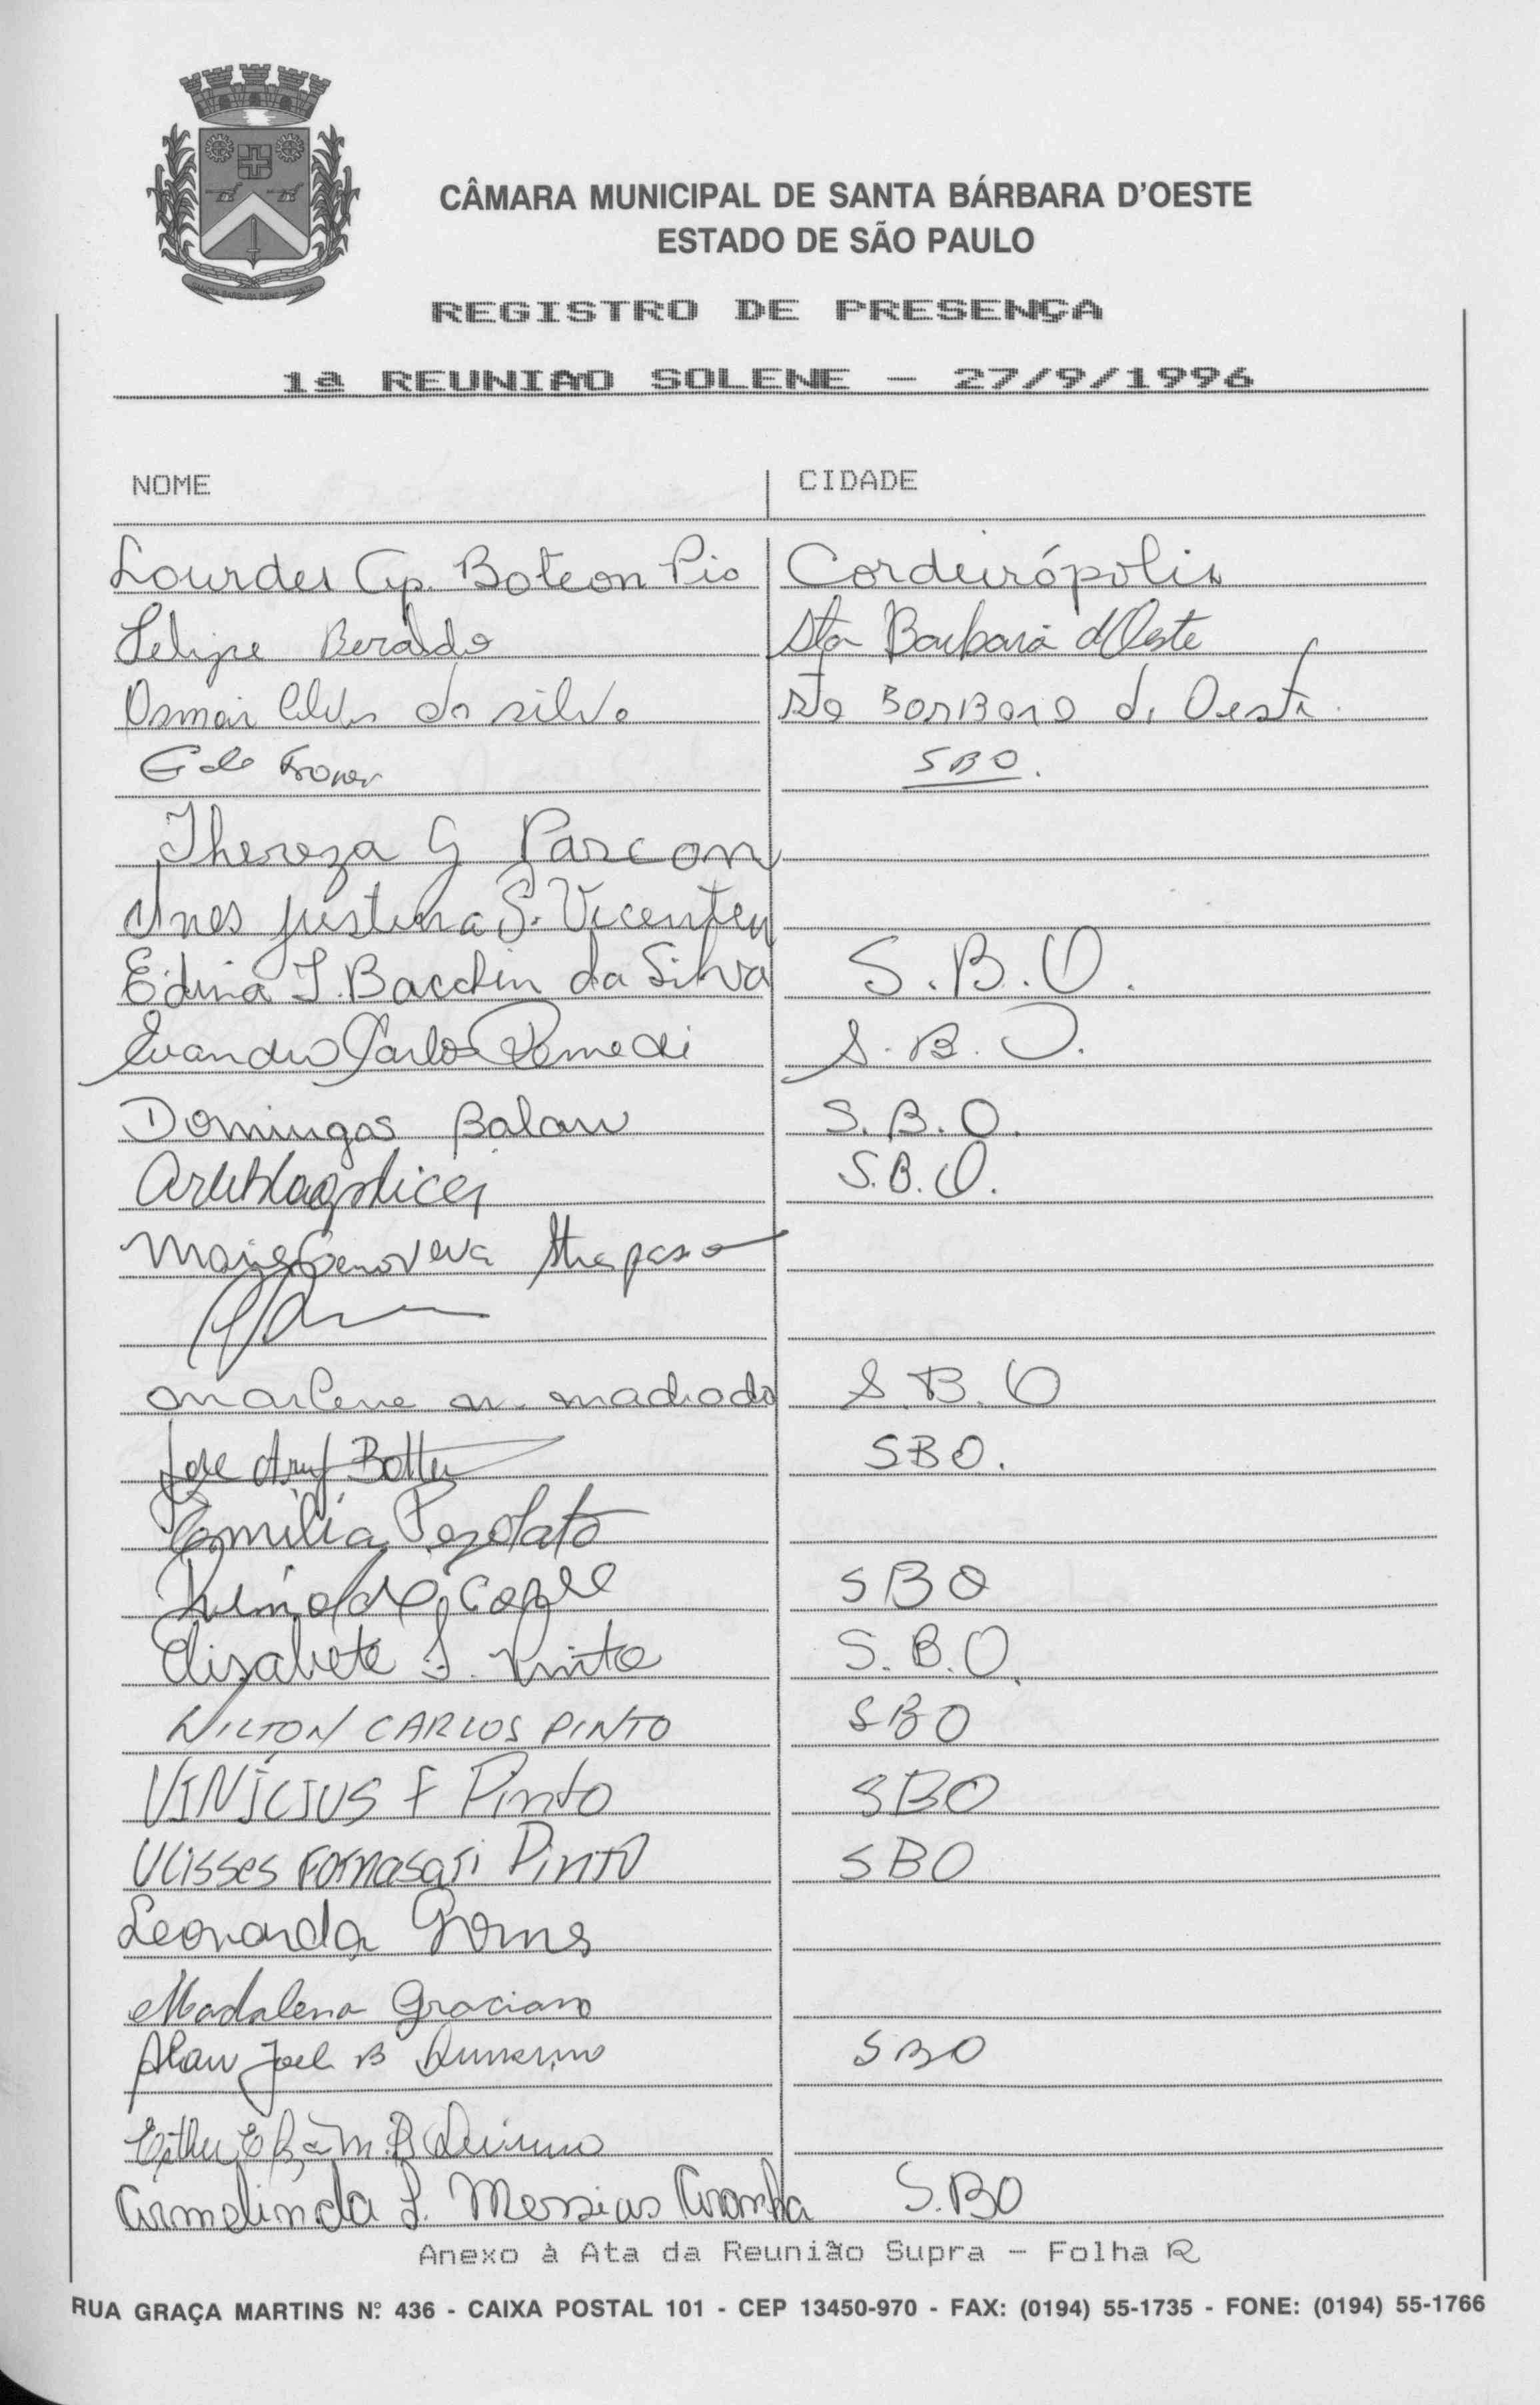 CÂMARA MUNICIPAL DE SANTA BÁRBARA D'OESTE
ESTADO DE SÃO PAULO
REGISTRO DE PRESENÇA
1ª REUNIAO SOLENE - 27/9/1996
NOME CIDADE
Lourdes Ap. Boteon Pio Cordeirópolis
Felipe Beraldo Sta Barbara d'Oeste
Osmar Alves da Silva Sta Barbara d' Oeste.
SBO.
Thereza G Parcon
Ines Justina S. Vicenten
Edina J. Bacchin da Silva S.B.O.
Evandro Carlos Romedi S.B.O.
Domingos Balan S.B.O.
S.B.O.
Maria Genoveva Strapasson
Marlene M. Machado S.B.O
José SBO.
Família Pezolato
SBO
Elizabete F. Pinto S.B.O.
WILTON CARLOS PINTO SBO
VINÍCIUS F Pinto SBO
Ulisses Fornasari Pinto SBO
Leonarda Gomes
Madalena Graciano
Alan Joel B SBO
Armelinda L. Messias Aranha S.BO
Anexo à Ata da Reunião Supra - Folha R
RUA GRAÇA MARTINS Nº 436 - CAIXA POSTAL 101 - CEP 13450-970 - FAX: (0194) 55-1735 - FONE: (0194) 55-1766